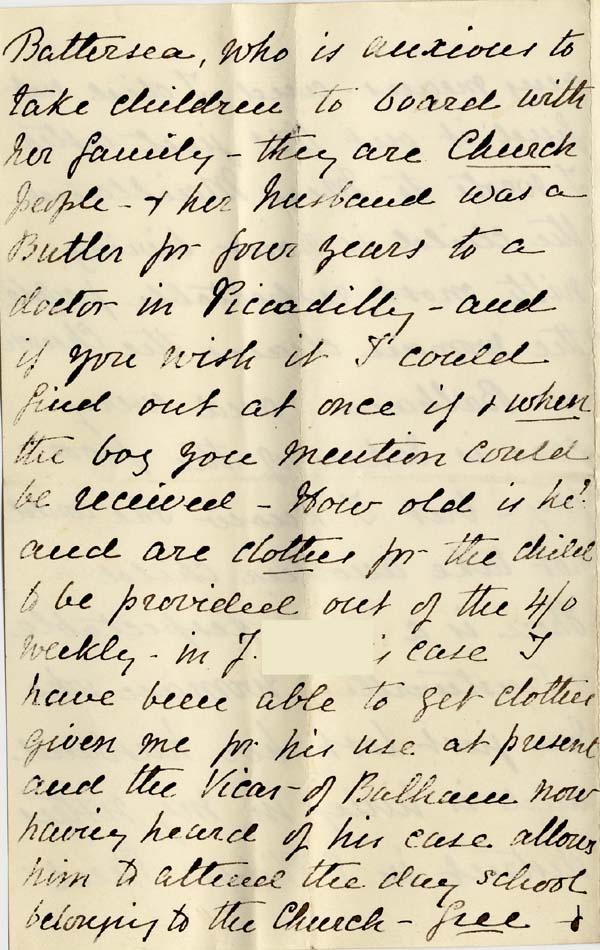 Battersea, who is anxious to
take children to board with
her family - they are Church
people - & her husband was a
Butler for four years to a
doctor in Piccadilly - and
if you wish it I could
find out at once if & when
the boy you mention could
be received - How old is he?
and are clothes for the child
to be provided out of the 4/0
weekly - in J. s case I
have been able to get clothes
given me for his use at present
and the Vicar of Balham now
having heard of his case allows
him to attend the day school
belonging to the Church - free &